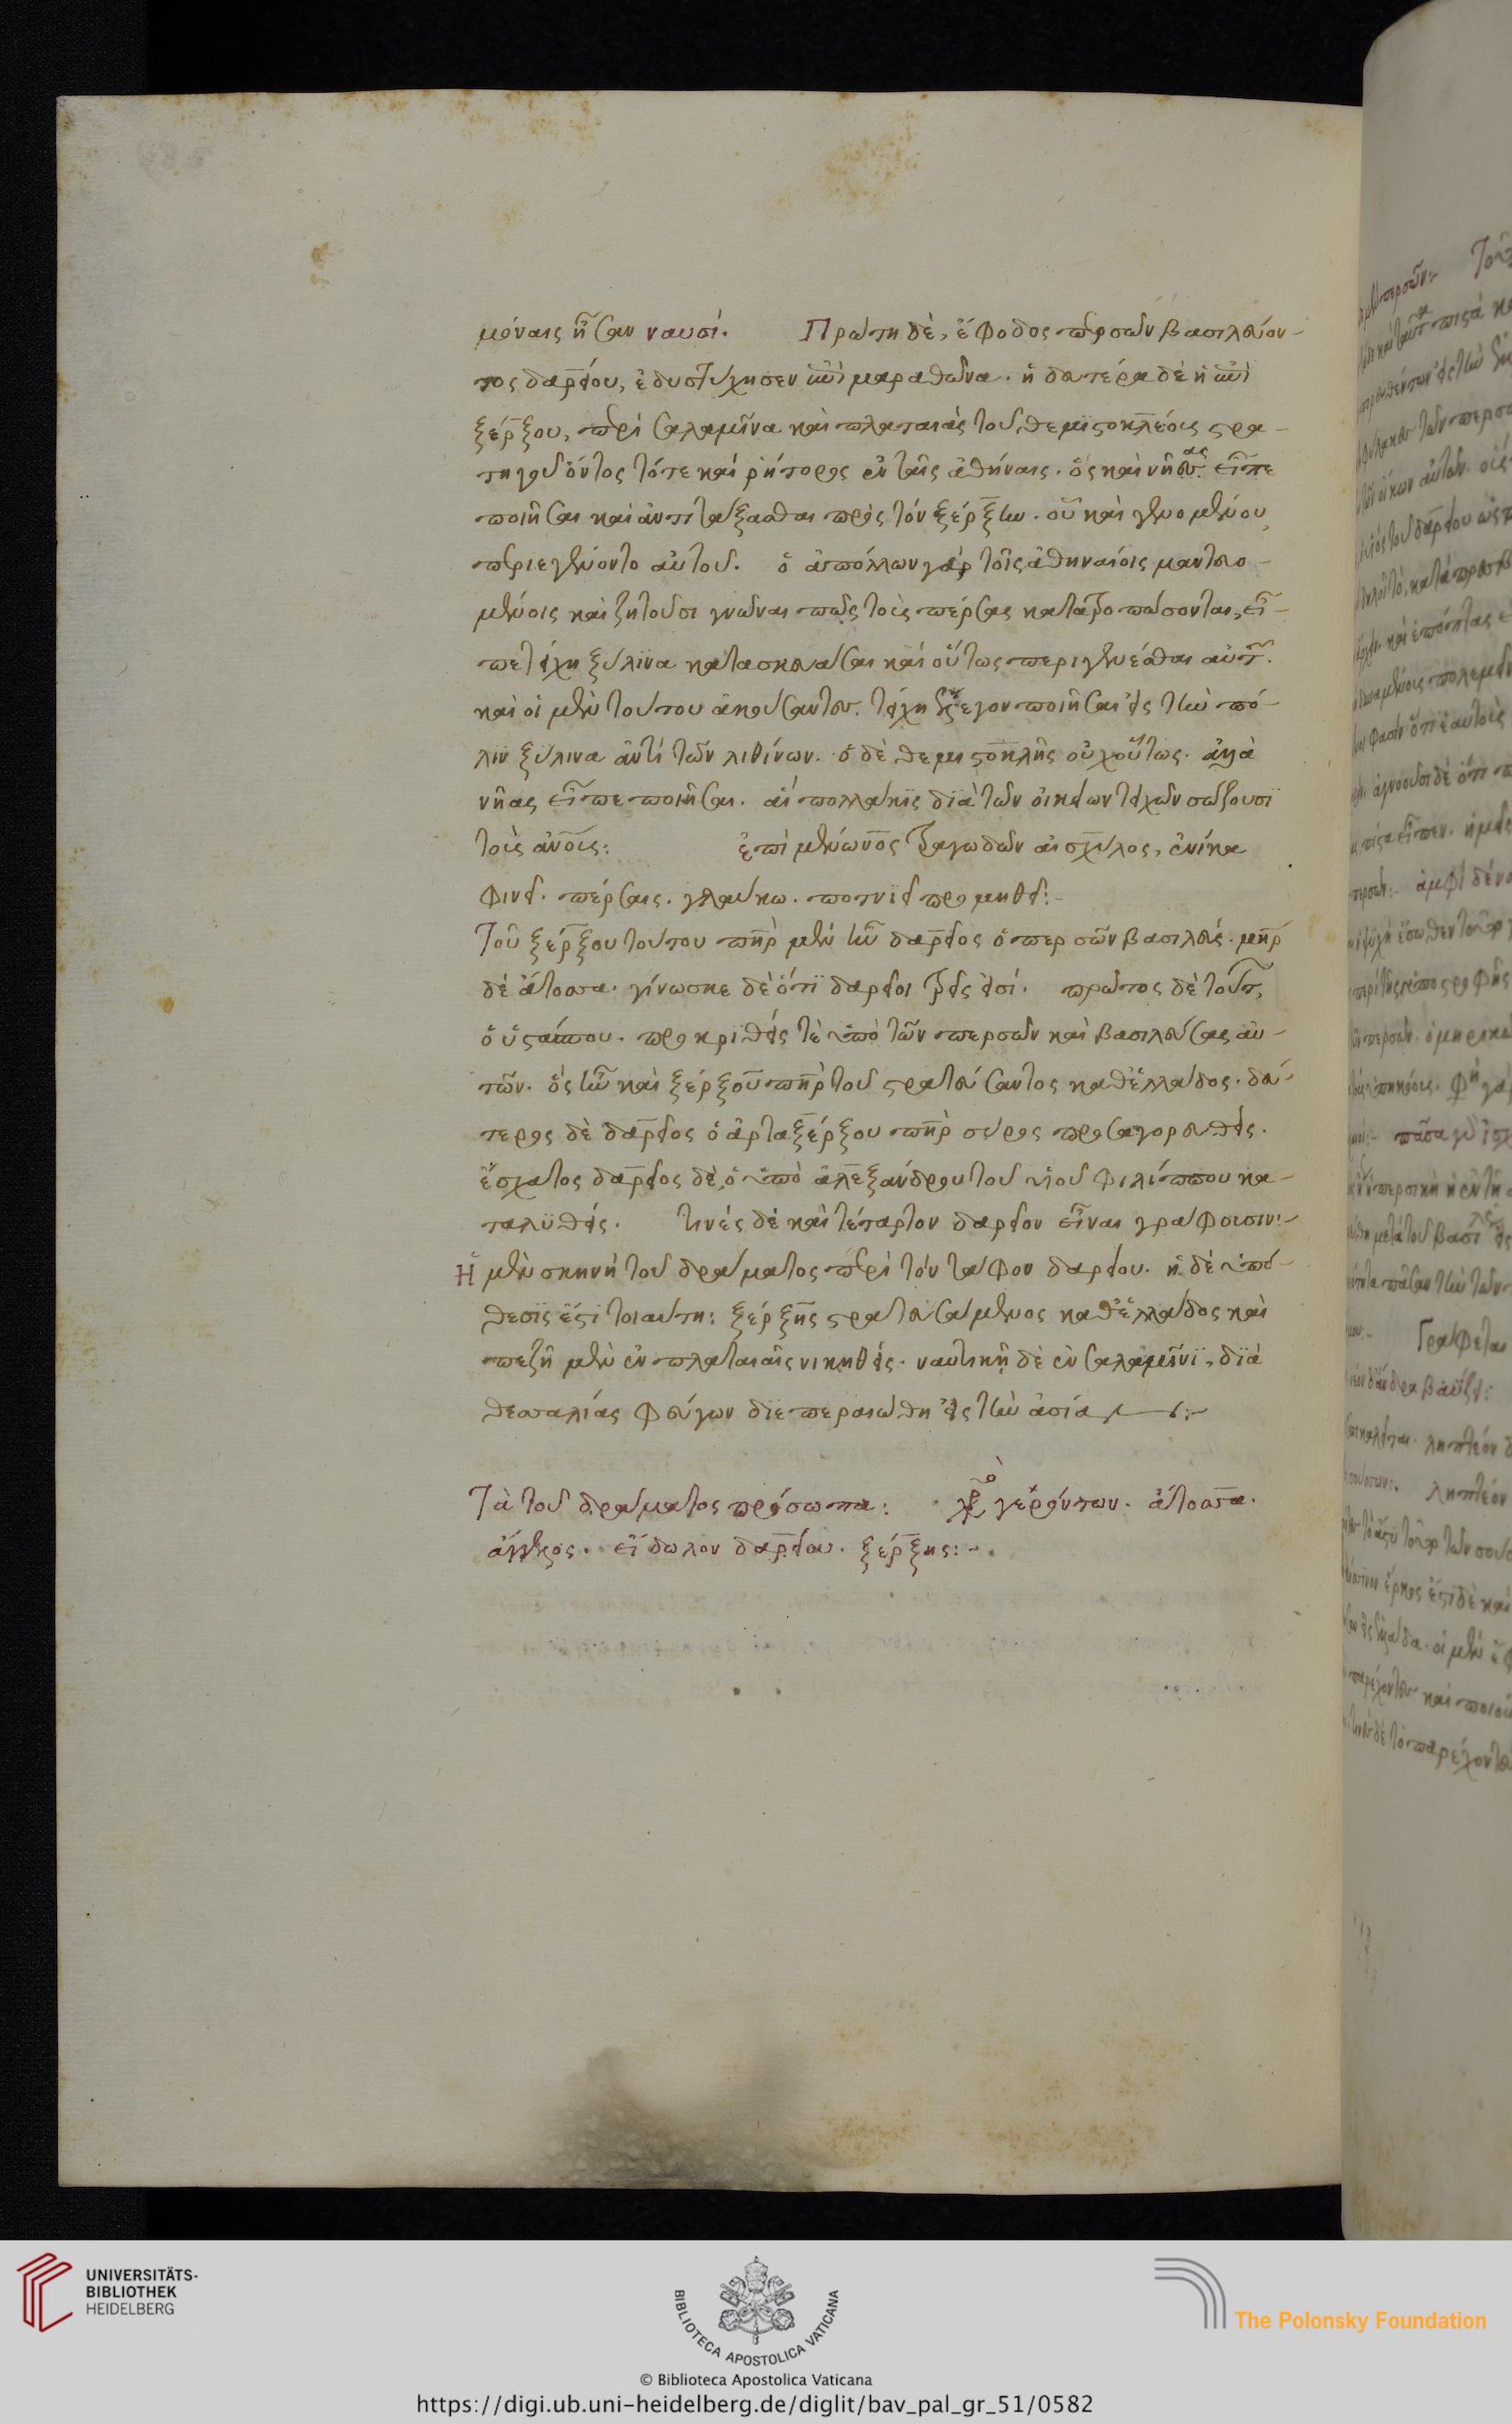 μόναις ἦσαν ναυσί. Πρώτη δὲ, ἔφοδος περσῶν βασιλεύον-
τος δαρείου, ἐδυστύχησεν ἐπὶ μαραθῶνα. ἡ δευτέρα δὲ ἡ ἐπὶ
ξέρξου, περὶ σαλαμῖνα καὶ πλαταιὰς τοῦ θεμιστοκλέους στρα-
τηγοῦ ὄντος τότε καὶ ῥήτορος ἐν ταῖς ἀθήναις. ὃς καὶ νῆας εἶπε
ποιῆσαι καὶ ἀντιτάξασθαι πρὸς τὸν ξέρξην. οὗ καὶ γενομένου
περιεγένοντο αὐτοῦ. ὁ ἀπόλλων γάρ τοῖς ἀθηναίοις μαντευο-
μένοις καὶ ζητοῦσι γνῶναι πῶς τοὺς πέρσας κατατροπώσονται, εἶ-
πε τείχη ξύλϊνα κατασκευάσαι καὶ οὕτως περιγενέσθαι αὐτ.
καὶ οἱ μὲν τούτου ἀκούσαντες τείχη ἔλεγον ποιῆσαι εἰς τὴν πό-
λιν ξύλινα ἀντὶ τῶν λιθίνων. ὁ δὲ θεμιστοκλῆς οὐχ οὕτως. ἀλλὰ
νῆας εἶπε ποιῆσαι. αἳ πολλάκϊς διὰ τῶν οἰκείων τειχῶν σώζουσϊ
τοὺς ἀν̅ο̅υς: ἐπὶ μένωνος τραγωδῶν αἰσχύλος, ἐνίκα
φινεῖ. πέρσαις. γλαύκω. ποτνϊεῖ προμηθεῖ:-
Τοῦ ξέρξου τούτου πη̅ρ μὲν ἦν δαρεῖος ὁ περσῶν βασιλεύς. μη̅ρ
δὲ ἄτοσσα. γίνωσκε δὲ ὅτϊ δαρεῖοι τρεῖς εἰσί. πρῶτος δὲ τούτ,
ὁ ὑστάσπου. προκρϊθείς τὲ ὑπὸ τῶν περσῶν καὶ βασιλεύσας αὐ-
τῶν. ὃς ἦν καὶ ξέρξου πη̅ρ τοῦ στρατεύσαντος καθ' ἑλλάδος. δεύ-
τερος δὲ δαρεῖος ὁ ἀρταξέρξου πη̅ρ σύρος προσαγορευθείς.
ἔσχατος δαρεῖος δὲ, ὁ ὑπὸ ἀλεξάνδρου τοῦ υἱοῦ φιλίππου κα-
ταλϋθείς. τινές δὲ καὶ τέταρτον δαρεῖον εἶναι γράφουσιν:-
Ἡ μὲν σκηνὴ τοῦ δράματος περὶ τὸν τάφον δαρείου. ἡ δὲ ὑπό-
θεσϊς ἐστὶ τοιαύτη: ξέρξης στρατευσάμενος καθ' ἑλλάδος καὶ
πεζῆ μὲν ἐν πλαταιαῖς νικηθείς. ναυτικῆ δὲ ἐν σαλαμῖνϊ, διὰ
θεσσαλίας φεύγων διεπεραιώθη εἰς τὴν ἀσίαν:-
Τὰ τοῦ δράματος πρόσωπα: χορὸς γερόντων. ἄτοσσα.
ἄγγελος. εἴδωλον δαρείου. ξέρξης:-.
UNIVERSITÄTS-
BIBLIOTHEK
HEIDELBERG
BIBLIOTECA APOSTOLICA VATICANA
The Polonsky Foundation
© Biblioteca Apostolica Vaticana
https://digi.ub.uni-heidelberg.de/diglit/bav_pal_gr_51/0582